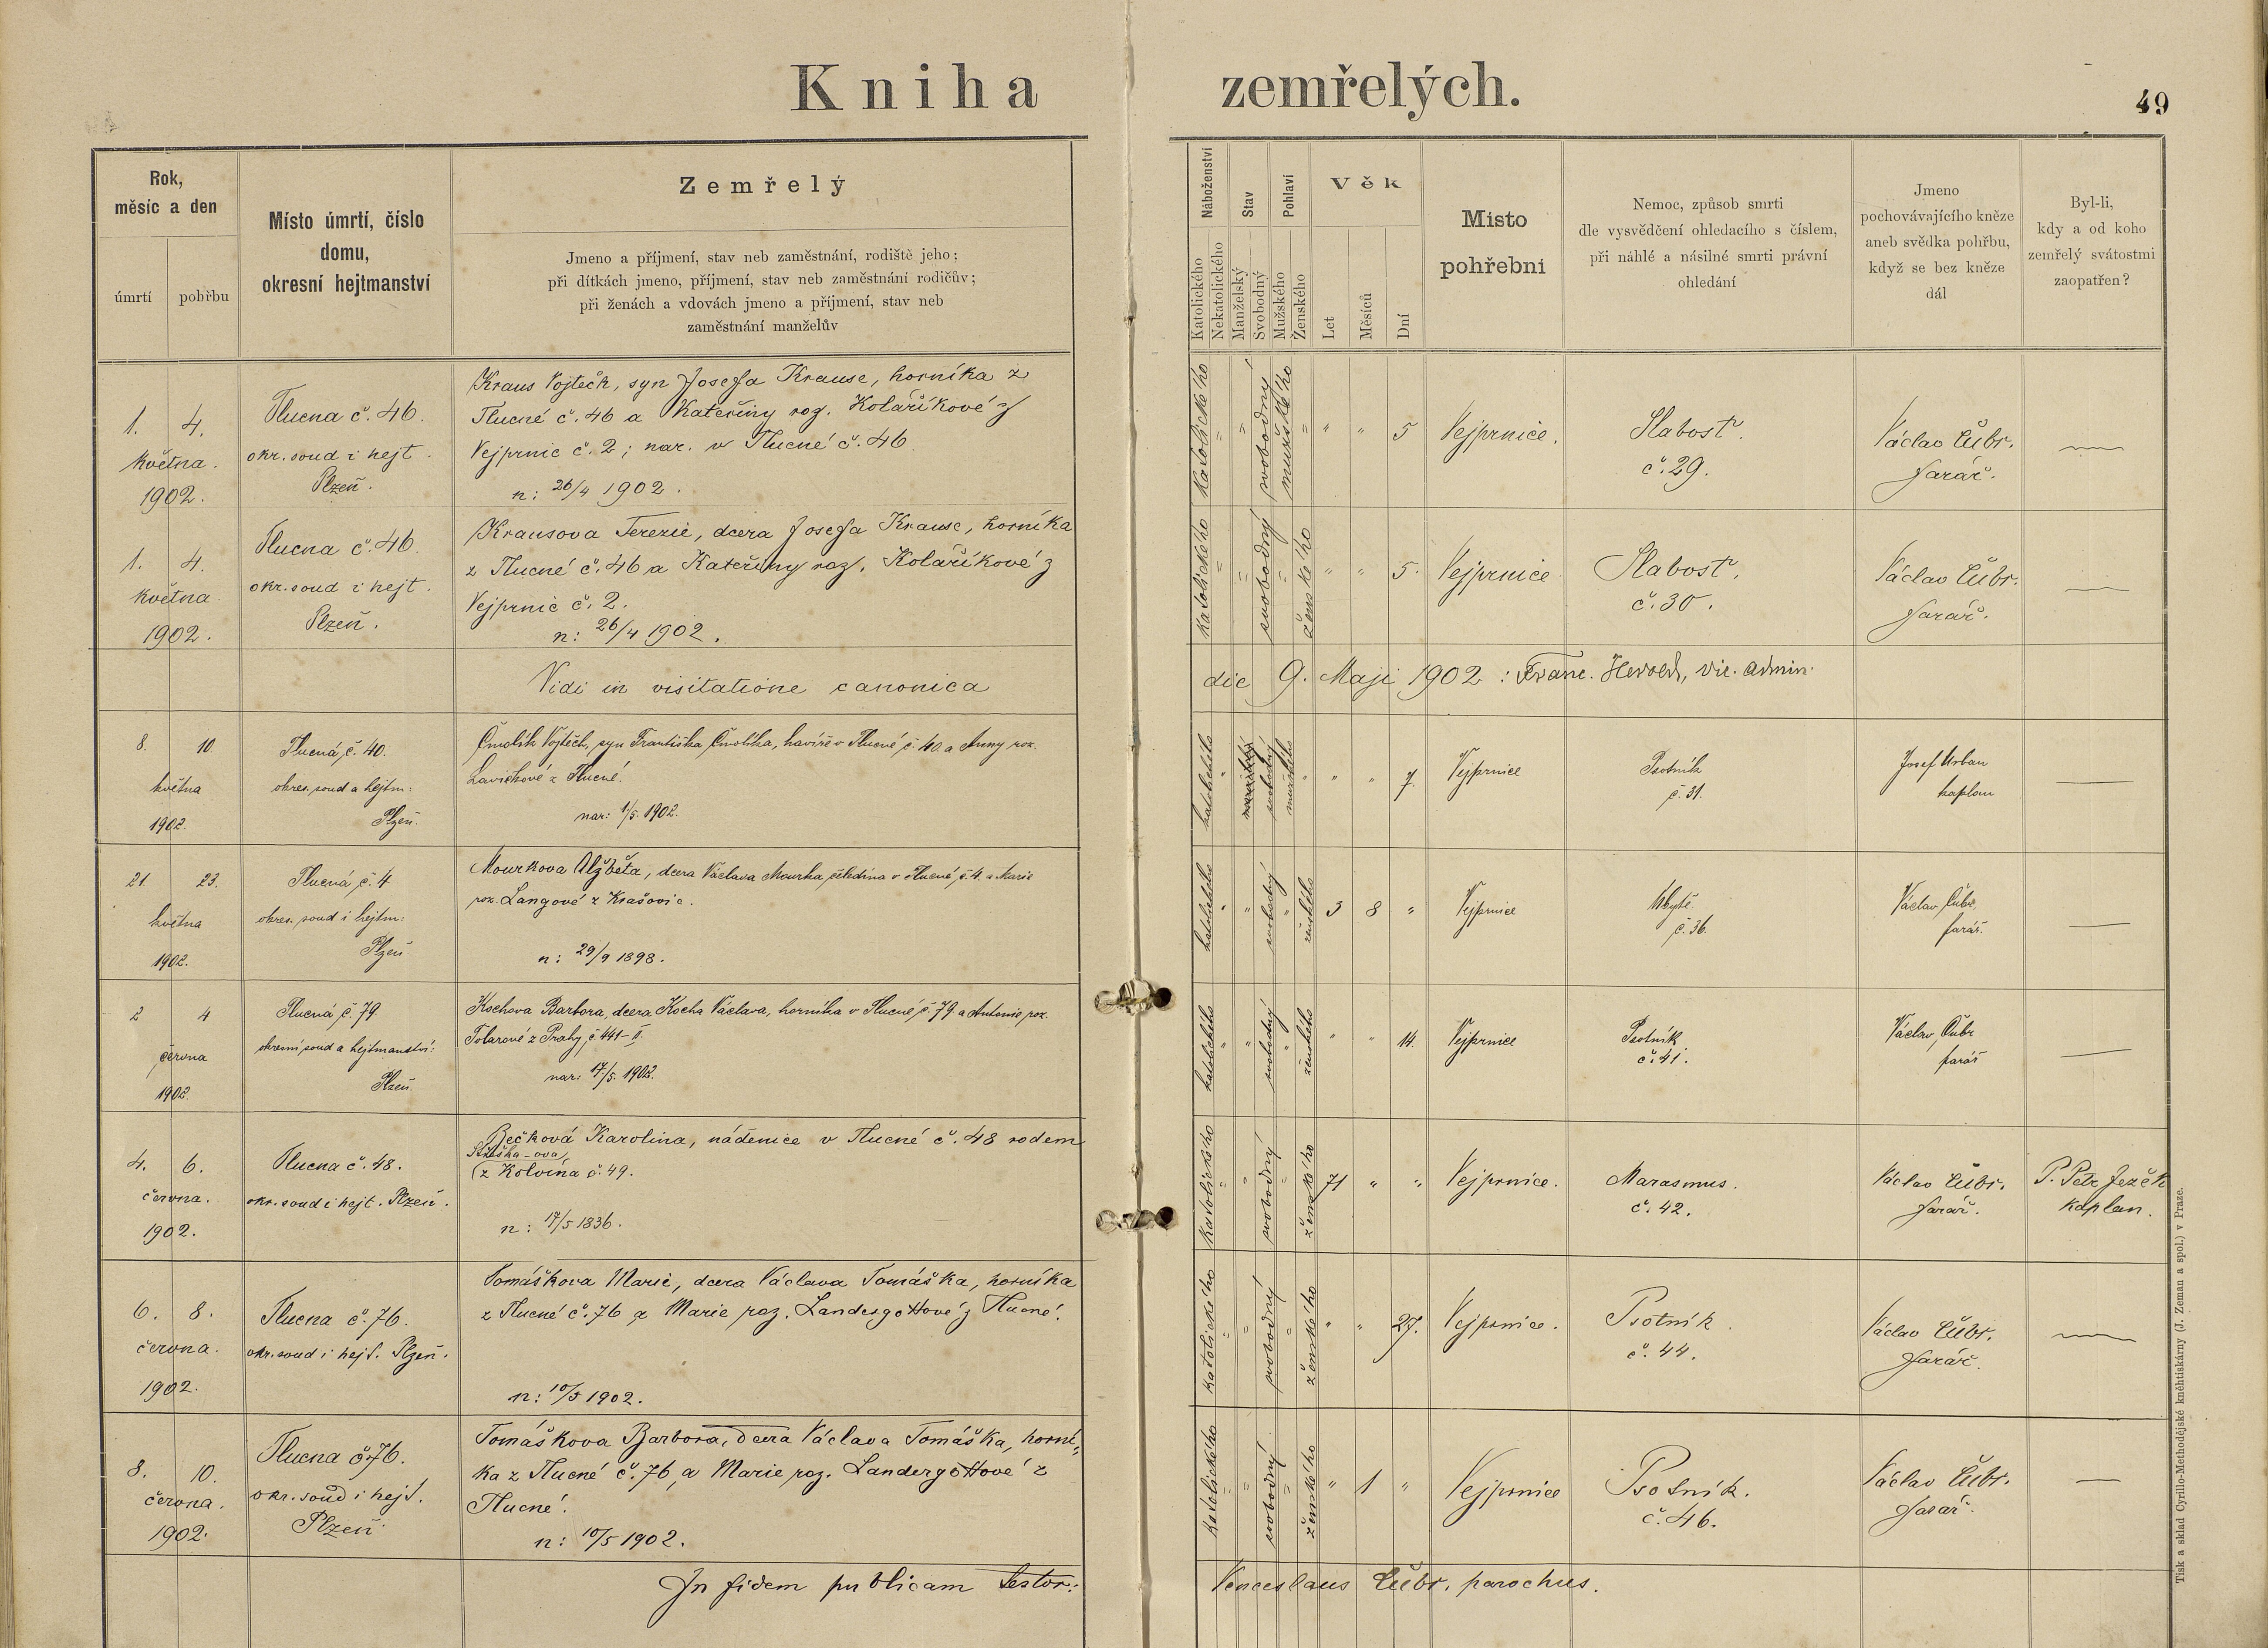 Kniha zemřelých.
49
Rok,
měsíc a den
úmrtí
pohřbu
Místo úmrtí, číslo
domu,
okresní hejtmanství
Zemřelý
Jmeno a příjmení, stav neb zaměstnání, rodiště jeho;
při dítkách jmeno, příjmení, stav neb zaměstnání rodičův;
při ženách a vdovách jmeno a přijmení, stav neb
zaměstnání manželův
Náboženství
Katolického
Nekatolického
Stav
Manželský
Svobodný
Pohlaví
Mužského
Ženského
Věk
Let
Měsíců
Dní
Místo
pohřební
Nemoc, způsob smrti
dle vysvědčení ohledacího s číslem,
při náhlé a násilné smrti právní
ohledání
Jmeno
pochovávajícího kněze
aneb svědka pohřbu,
když se bez kněze
dál
Byl-li,
kdy a od koho
zemřelý svátostmi
zaopatřen?
1. 4.
května.
1902.
Tlucna č. 46.
okr. soud i hejt.
Plzeň.
Kraus Vojtěch, syn Josefa Krause, horníka z
Tlucné č. 46 a Kateřiny roz. Kolaříkové z
Vejprnic č. 2; nar. v Tlucné č. 46
n: 26/4 1902.
katolického " " svobodný mužského " " " 5
Vejprnice.
Slabost.
č. 29.
Václav Čubr.
farář.
1. 4.
května
1902.
Tlucna č. 46.
okr. soud i hejt.
Plzeň.
Krausova Terezie, dcera Josefa Krause, horníka
z Tlucné č. 46 a Kateřiny roz. Kolaříkové z
Vejprnic č. 2.
n: 26/4 1902.
katolického " " svobodný " ženského " " 5.
Vejprnice
Slabost.
č. 30.
Václav Čubr.
farář.
Vidi in visitatione canonica die 9. Maji 1902 : Franc. Herold, vic. admin.
8. 10.
května
1902.
Tlucná, č. 40.
okres. soud a hejtm:
Plzeň.
Čmolík Vojtěch, syn Františka Čmolíka, havíře v Tlucné, č. 40. a Anny roz.
Lavičkové z Tlucné.
nar: 1/5. 1902.
katolického " svobodný mužského " " " 7.
Vejprnice
Psotník
č. 31.
Josef Urban
kaplan
21. 23.
května
1902.
Tlucná, č. 4
okres. soud i hejtm:
Plzeň
Mourkova Alžběta, dcera Václava Mourka, čeledína v Tlucné, č. 4. a Marie
roz. Langové z Krašovic.
n: 29/9 1898.
katolického " " svobodný " ženského 3 8 "
Vejprnice
č. 36.
Václav Čubr
farář.
2 4
června
1902.
Tlucná č. 79
okresní soud a hejtmanství:
Plzeň.
Kochova Barbora, dcera Kocha Václava, horníka v Tlucné, č. 79 a Antonie roz.
Tolarové z Prahy, č. 441-II.
nar: 17/5. 1902.
katolického " " svobodný " ženského " " 14.
Vejprnice
Psotník
č. 41.
Václav Čubr
farář
4. 6.
června.
1902.
Tlucna č. 48.
okr. soud i hejt. Plzeň.
Bečková Karolina, nádenice v Tlucné č. 48 rodem
(z Kolvína č. 49.
n: 17/5 1836.
katolického " " svobodný " ženského 71 " "
Vejprnice.
Marasmus.
č. 42.
Václav Čubr.
farář.
P. Petr Ježek
kaplan.
6. 8.
června.
1902.
Tlucna č. 76.
okr. soud i hejt. Plzeň.
Tomáškova Marie, dcera Václava Tomáška, horníka
z Tlucné č. 76 a Marie roz. Landergottové z Tlucné.
n: 10/5 1902.
katolického " " svobodný " ženského " " 27.
Vejprnice.
Psotník.
č. 44.
Václav Čubr.
farář.
8. 10.
června.
1902.
Tlucna č. 76.
okr. soud i hejt.
Plzeň.
Tomáškova Barbora, dcera Václava Tomáška, horní-
ka z Tlucné č. 76 a Marie roz. Landergottové z
Tlucné.
n: 10/5 1902.
katolického " " svobodný " ženského " 1 "
Vejprnice
Psotník.
č. 46.
Václav Čubr.
farář.
In fidem publicam testor: Venceslaus Čubr, parochus.
Tisk a sklad Cyrillo-Methodějské kněhtiskárny (J. Zeman a spol.) v Praze.